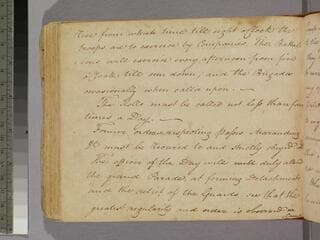 five from which time till eight oClock the
troops are to exercise by Companies. The Battal
ions will exercise every afternoon from five
oClock till sun down, and the Brigades
occasionally when called upon.
The Rolls must be called not less than four
times a Day.
Former orders respecting Passes Marauding
&c must be recured to and strictly obeyed
The officers of the Day will duly attend
the grand Parade, at forming Detachments
and the relief of the Guards, see that the
greatest regularity and order is observed in